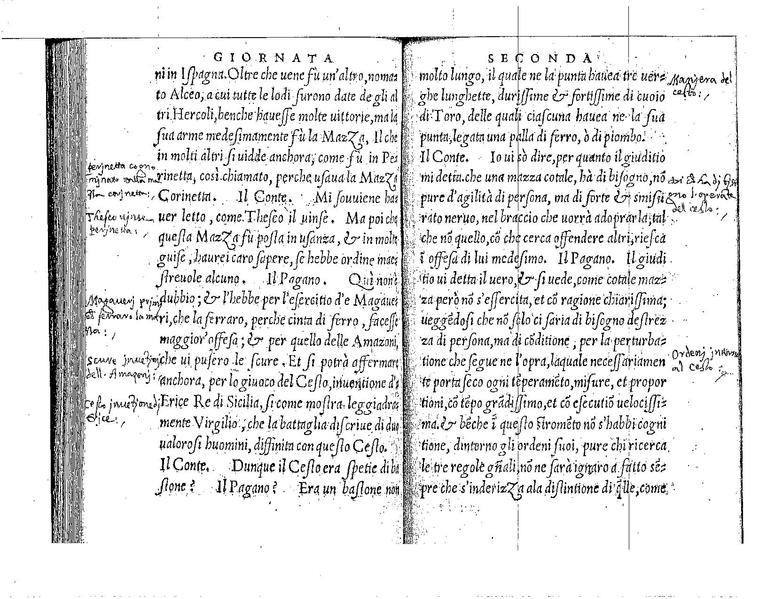 GIORNATA
ni in Ispagna. Oltre che uene fù un'altro, noma=
to Alceo, a cui tutte le lodi furono date de gli al
tri Hercoli, benche hauesse molte uittorie, ma la
sua arme medesimamente fù la MaZZa. Il che
in molti altri si uidde anchora; come fù in Pe
rinetta, così chiamato, perche usaua la MaZZa
Corinetta. Il Conte. Mi souiene ha
uer letto, come Theseo il uinse. Ma poi che
questa MaZZa fù posta in usanza, & in molte
guise, haurei caro sapere, se hebbe ordine mae
streuole alcuno. Il Pagano. Qui non è
dubbio; & l'hebbe per l'esercito d'e Magaue
ri, che la ferraro, perche cinta di ferro, facesse
maggior offesa; & per quello delle Amazoni,
che ui pusero le scure. Et si potrà affermar
anchora, per lo giuoco del Cesto, inuentione d'
Erice Re di Sicilia, si come mostra leggiadra=
mente Virgilio, che la battaglia discriue di due
ualorosi huomini, diffinita con questo Cesto.
Il Conte. Dunque il Cesto era spetie di ba
stone? Il Pagano? Era un bastone non
Theseo
SECONDA
molto lungo, il quale ne la punta hauea tre uer=
ghe lunghette, durissime & fortissime di cuoio
di Toro, delle quali ciascuna hauea ne la sua
punta, legata una palla di ferro, ò di piombo.
Il Conte. Io ui sò dire, per quanto il giuditio
mi detta, che una mazza cotale, hà di bisogno, nō
pure d'agilità di persona, ma di forte & smisu
rato neruo, nel braccio che uorrà adoprarla; tal
che nō quello, cō che cerca offendere altri, riesca
ī offesa di lui medesimo. Il Pagano. Il giudi
tio ui detta il uero, & si uede, come cotale maz=
za però nō s'essercita, et cō ragione chiarissima;
ueggēdosi che nō solo ci saria di bisogno destrez
za di persona, ma di cōditione, per la perturba=
tione che segue ne l'opra, laquale necessariamen
te porta seco ogni tēperamēto, misure, et propor
tioni, cō tēpo grādissimo, et cō esecutiō uelocissi=
ma. & bēche ī questo stromēto nō s'habbi cogni
tione, dintorno gli ordeni suoi, pure chi ricerca
le tre regole gñali, nō ne sarà ignaro a fatto sē=
pre che s'inderiZZa ala distintione di q̃lle, come
Maniera del
cesto:
del cesto: